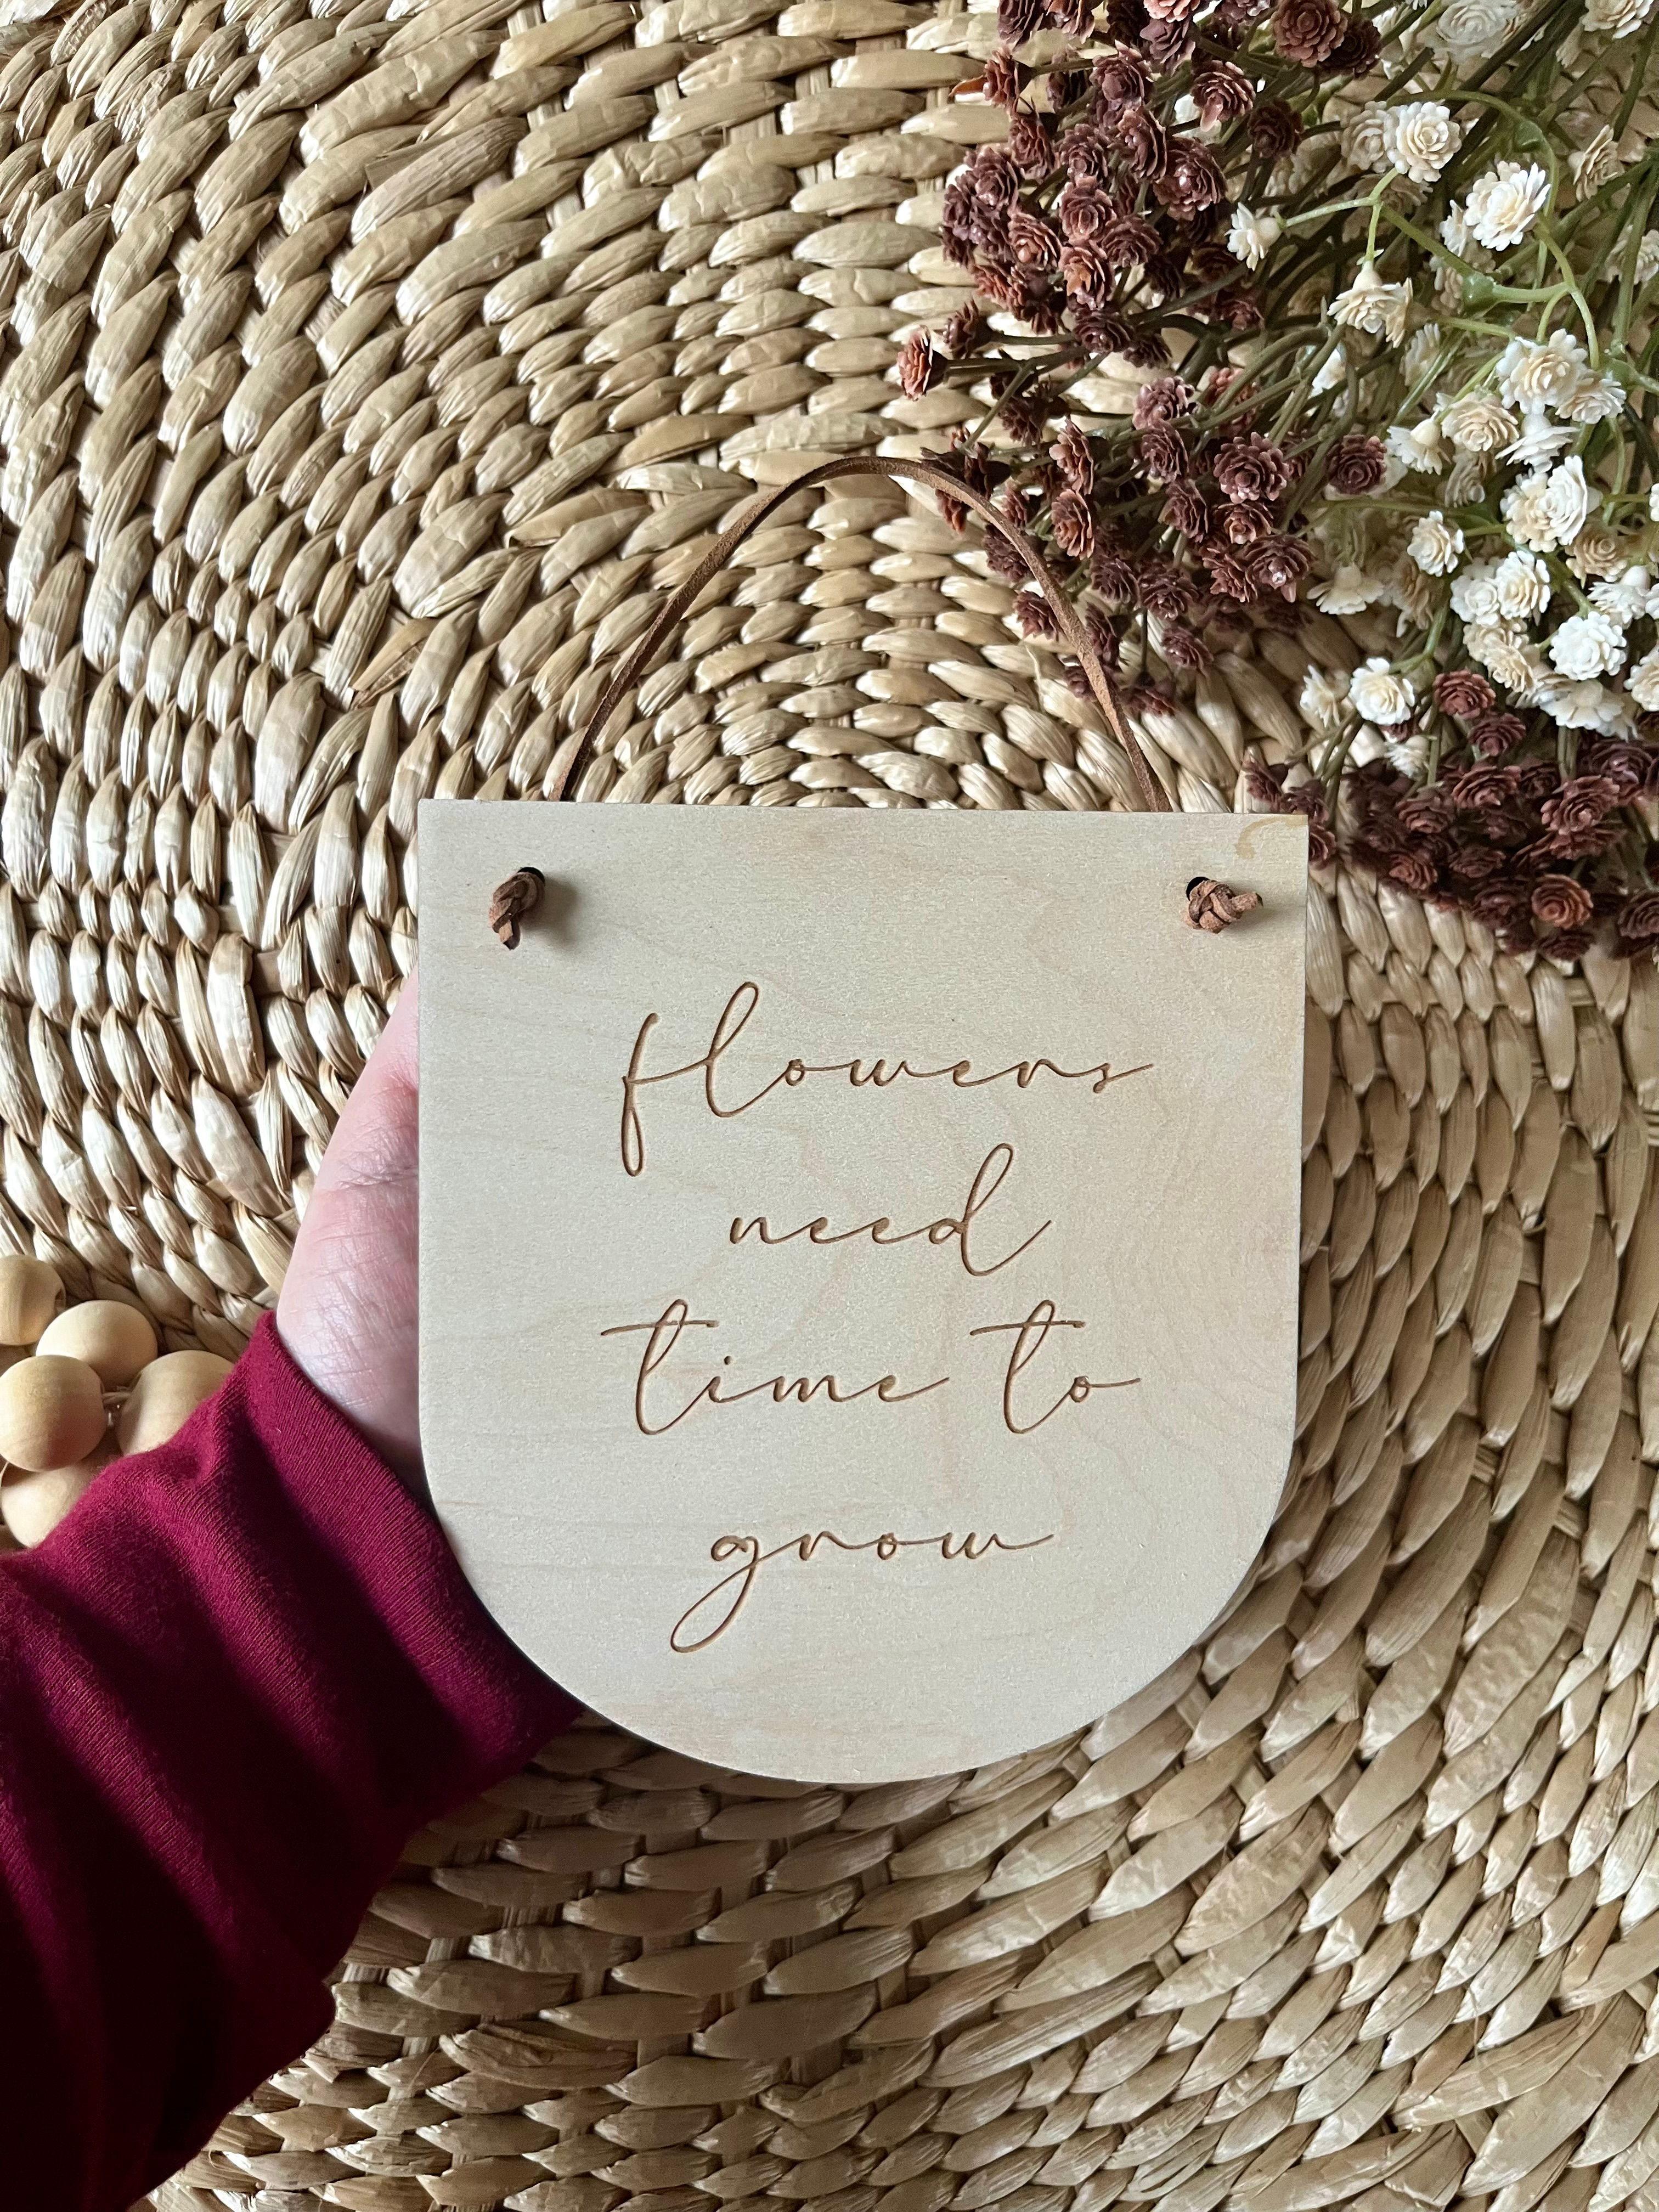 flowers
need
time to
grow